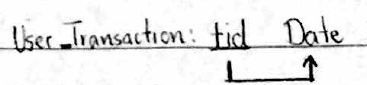 User_Transaction: tid Date